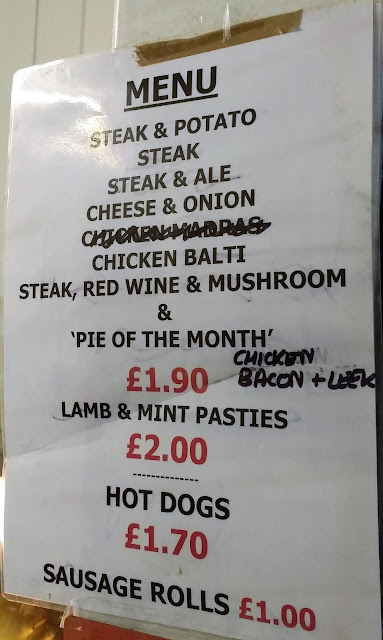 MENU
STEAK & POTATO
STEAK
STEAK & ALE
CHEESE & ONION
CHICKEN MADRAS
CHICKEN BALTI
STEAK, RED WINE & MUSHROOM
&
‘PIE OF THE MONTH’
CHICKEN
BACON + LEEK
£1.90
LAMB & MINT PASTIES
£2.00
--------------
HOT DOGS
£1.70
SAUSAGE ROLLS £1.00